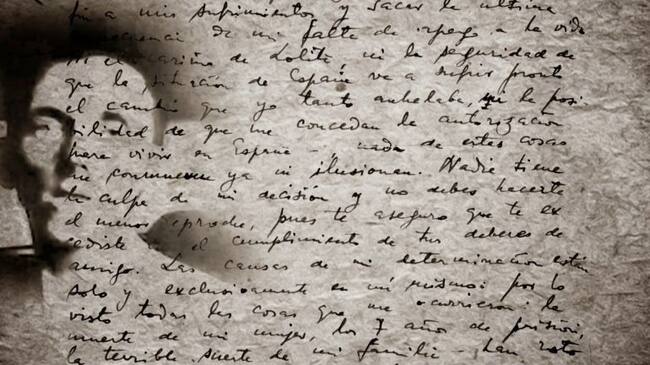 fin a mis sufrimientos y sacar la última
consecuencia de mi falta de apego a la vida
Ni el cariño de Lolita, ni la seguridad de
que la situación de España va a sufrir pronto
el cambio que yo tanto anhelaba, ni la posi-
bilidad de que me concedan la autorización
para vivir en España - nada de estas cosas
me conmueven ya ni ilusionan. Nadie tiene
la culpa de mi decisión y no debes hacerte
el menor reproche, pues te aseguro que te ex
cediste en el cumplimiento de tus deberes de
amigo. Las causas de mi determinación están
solo y exclusivamente en mí mismo: por lo
visto todas las cosas que me ocurrieron: la
muerte de mi mujer, los 7 años de prisión,
la terrible suerte de mi familia - han roto